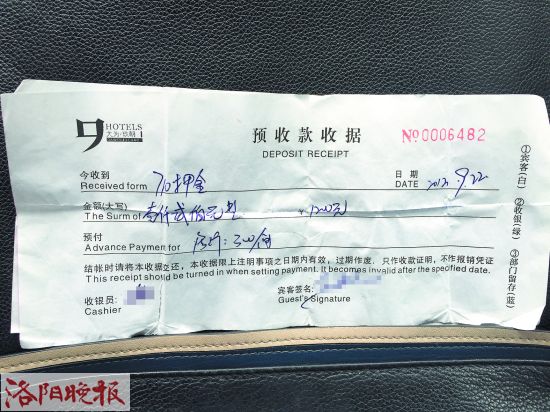 HOTELS
预收款收据
DEPOSIT RECEIPT
No 0006482
今收到
Received form 710押金
日期
DATE 9.22
金额(大写)
The Surm of 壹仟贰佰元整 ¥1200元
预付
Advance Paymemt for
结帐时请将本收据交还，本收据限上注明事项之日期内有效，过期作废，只作收款证明，不作报销凭证
This receipt should be turned in when setting payment. It becomes invalid after the specified date.
收银员:
Cashier
宾客签名:
Guest's Signature
①宾客(白)
②收银(绿)
③部门留存(蓝)
洛阳晚报